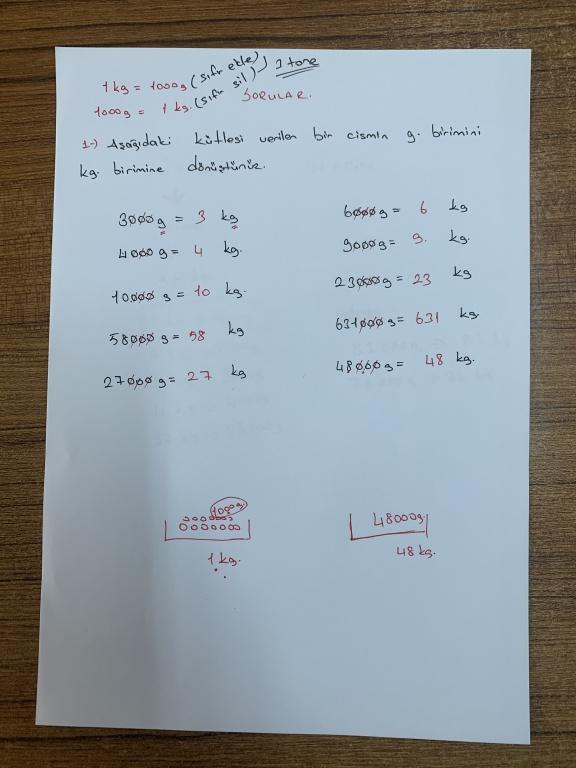 1 kg = 1000g (sıfır ekle) 3 tane
1000g = 1 kg. (sıfır sil)
SORULAR.
1-) Aşağıdaki kütlesi verilen bir cismin g. birimini
kg. birimine dönüştünüz.
3000g = 3 kg
4000g = 4 kg.
10000 g = 10 kg.
58000 g = 58 kg
27000g = 27 kg
6000g = 6 kg
9000g = 9. kg.
23000g = 23 kg
631000g = 631 kg.
48000g = 48 kg.
1000g.
1 kg.
48000g.
48 kg.